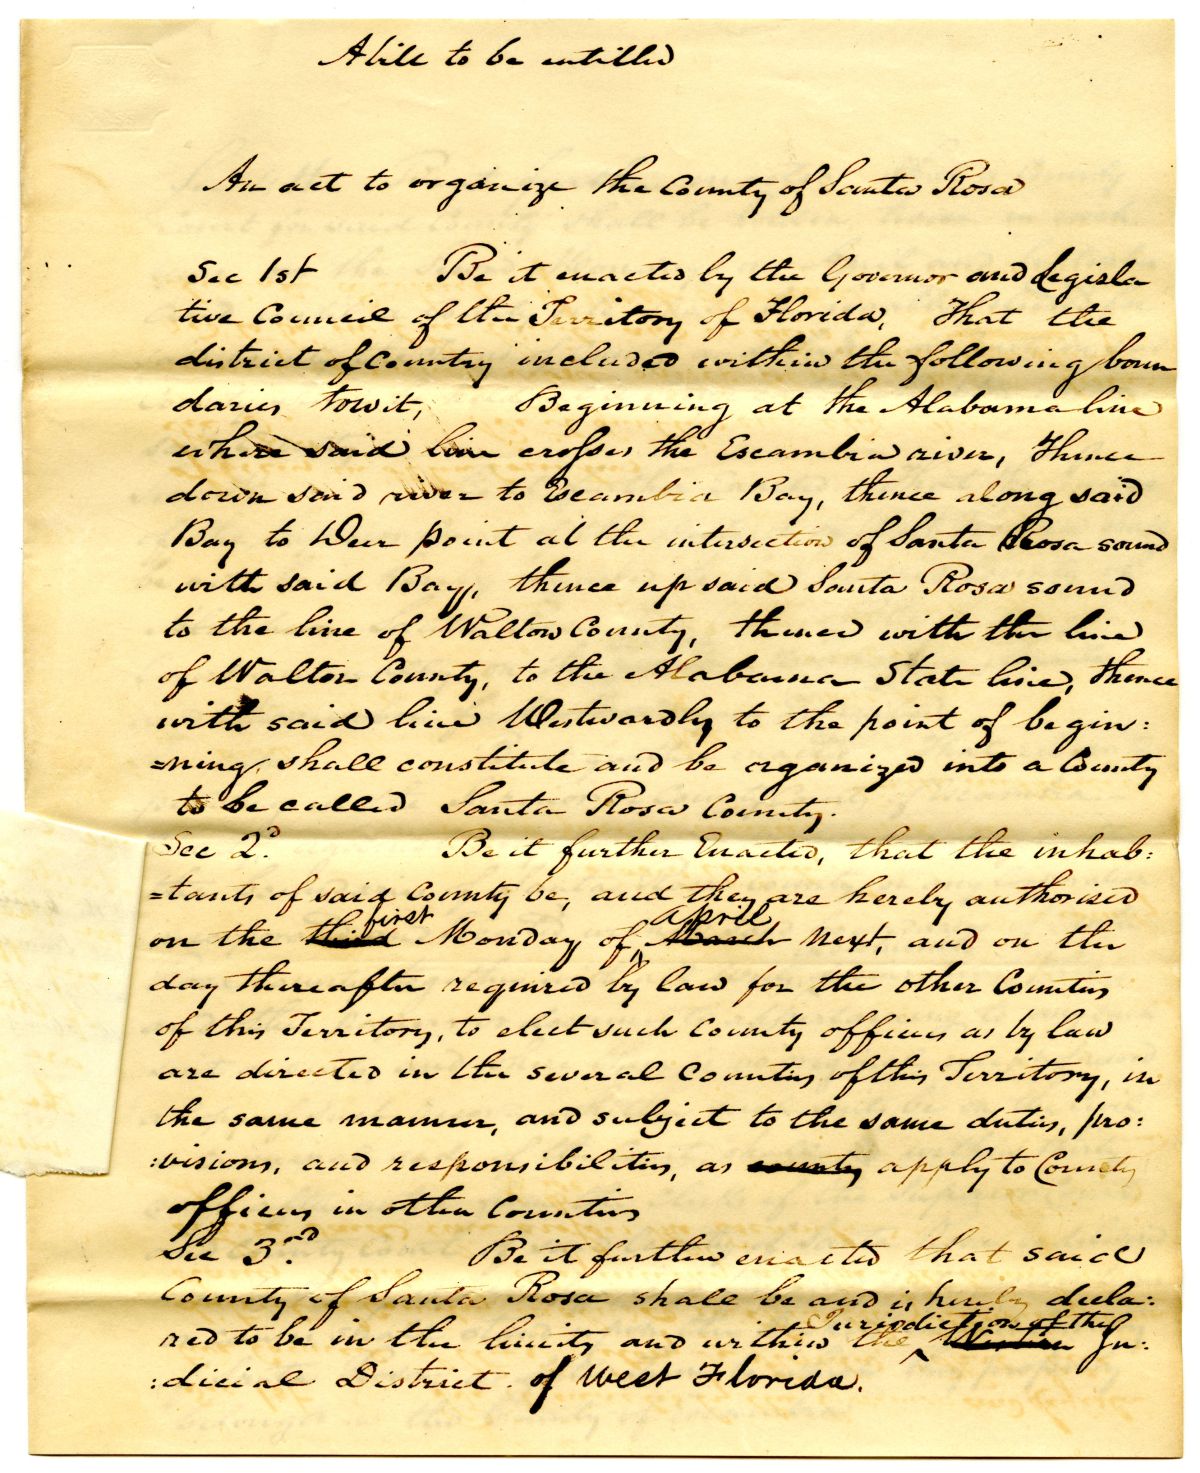 A bill to be entitled
An act to organize the County of Santa Rosa
Sec 1st Be it enacted by the Governor and Legisla
tive Council of the Territory of Florida, That the
district of Country included within the following boun
daries towit, Beginning at the Alabama line
where said line crosses the Escambia river, Thence
down said river to Escambia Bay, thence along said
Bay to Deer point at the intersection of Santa Rosa sound
with said Bay, thence up said Santa Rosa sound
to the line of Walton County, thence with the line
of Walton County, to the Alabama State line, thence
with said line Westwardly to the point of begin:
=ning, shall constitute and be organized into a County
to be called Santa Rosa County.
Sec 2d. Be it further Enacted, that the inhab:
=tants of said County be, and they are hereby authorised
first april
on the third Monday of March next, and on the
day thereafter required by law for the other Counties
of this Territory, to elect such County officers as by law
are directed in the several Counties of this Territory, in
the same manner, and subject to the same duties, pro:
:visions, and responsibilities, as county apply to County
officers in other Counties
Sec 3nd. Be it further enacted that said
County of Santa Rosa shall be and is hereby decla:
Jurisdiction of the
red to be in the limits and within the Western Ju:
:dicial District of West Florida.